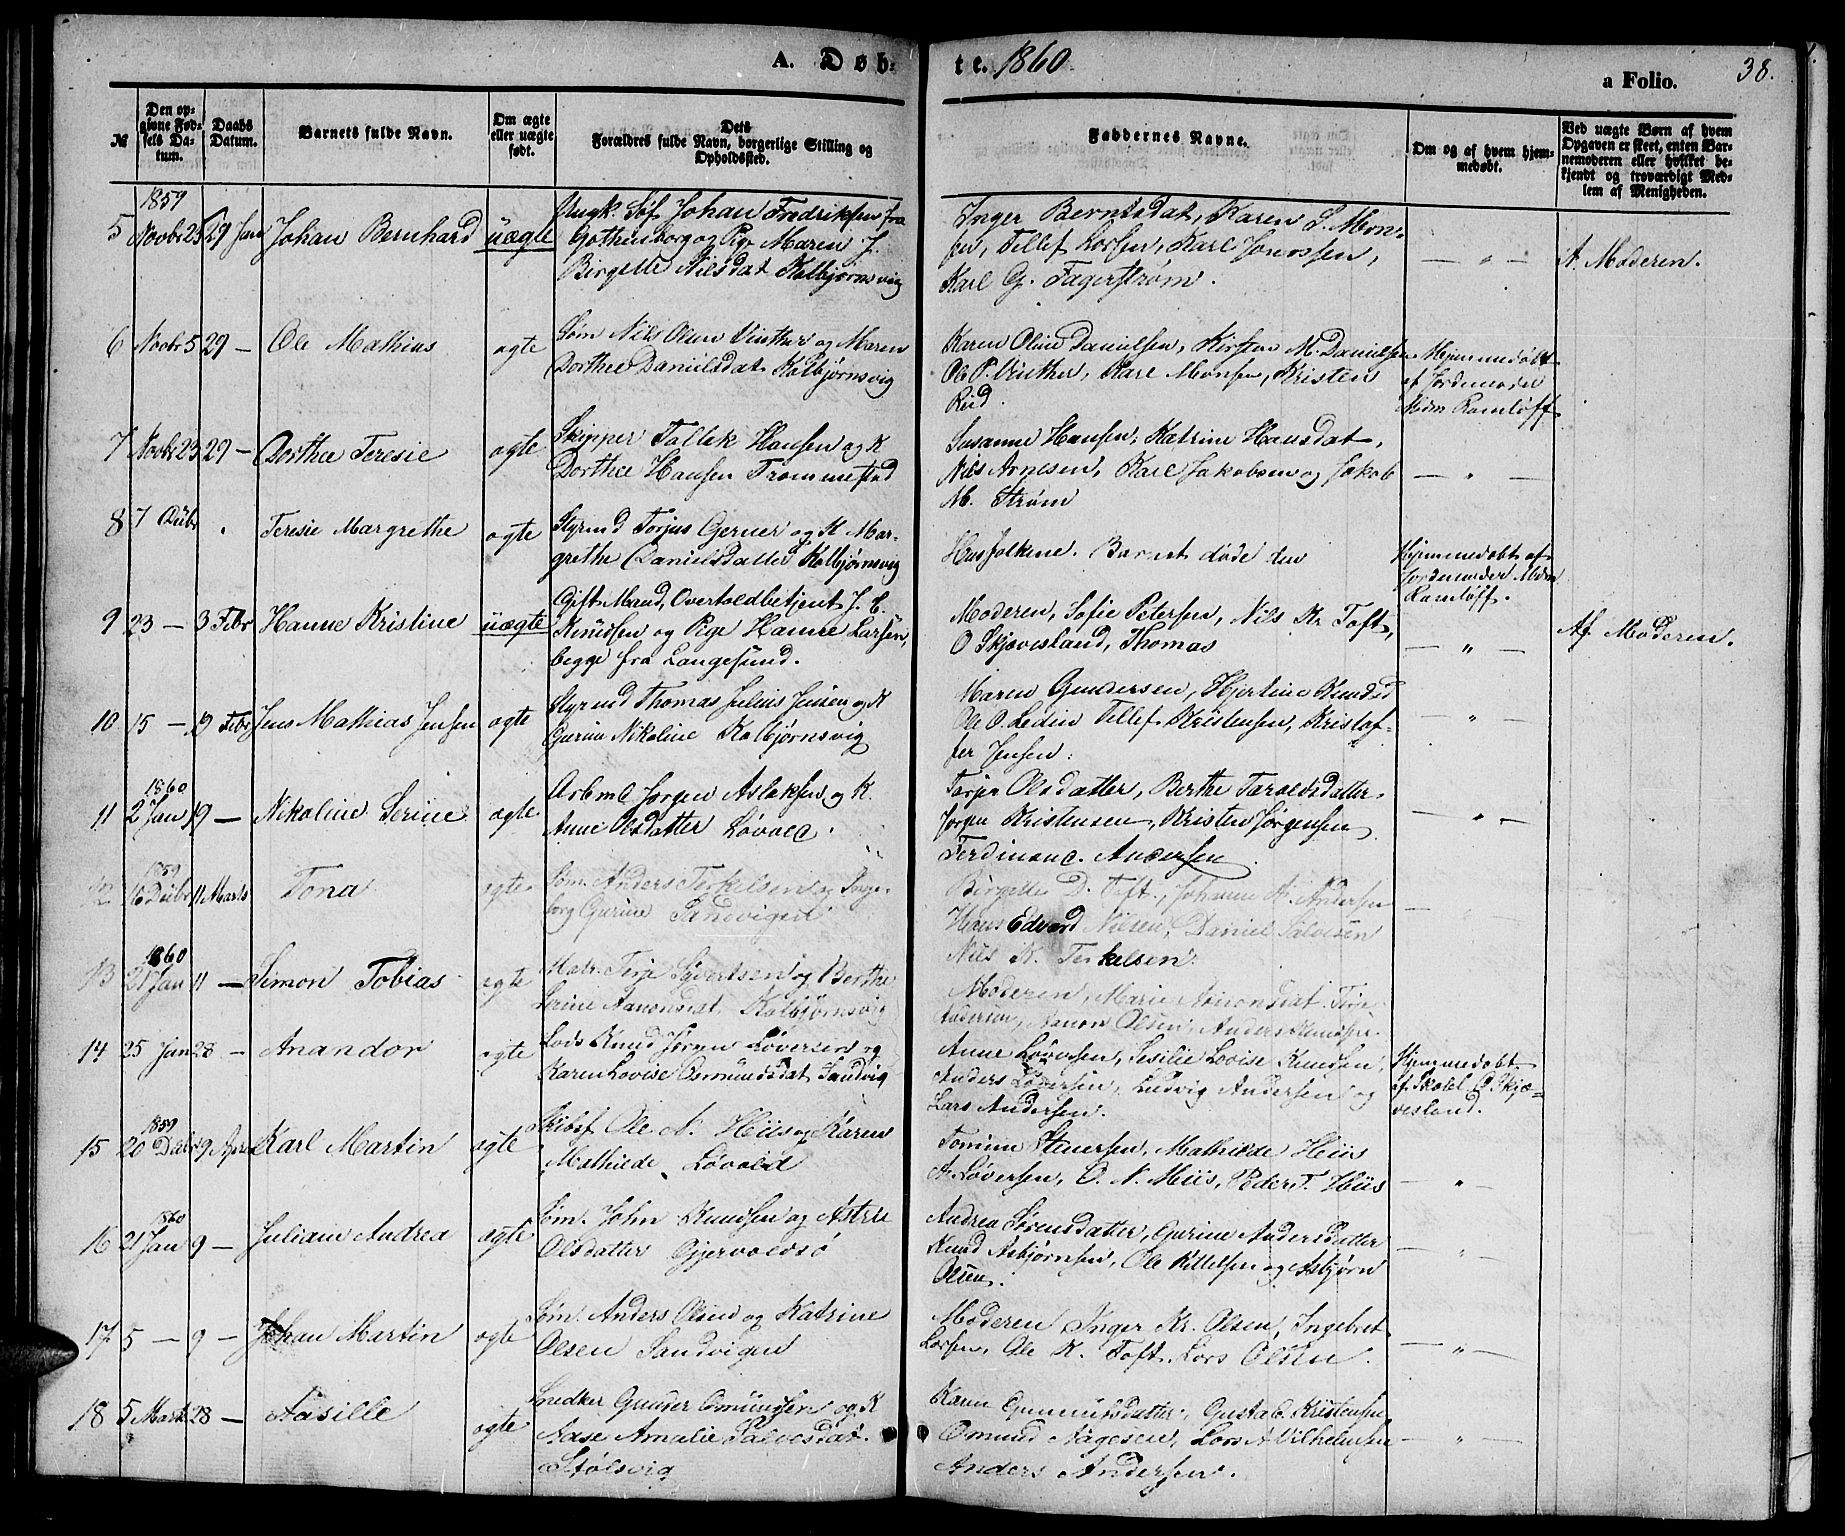 A. Døb-
te. 1860
a Folio.
38.
№
Den op-
givne Fød-
sels Da-
tum.
Daabs
Datum.
Barnets fulde Navn.
Om ægte
eller uægte
født.
Dets
Forældres fulde Navn, borgerlige Stilling og
Opholdssted.
Faddernes Navne.
Om og af hvem hjem-
medøbt.
Ved uægte Børn af hvem
Opgaven er skeet, enten Bar-
nemoderen eller hvilket be-
kjendt og troværdigt Med-
lem af Menigheden.
1859
5 Novbr 25 29 Jan Johan Bernhard uægte
Ungk. Søf. Johan Fredriksen fra
Gothenborg og Pige Maren J.
Birgette Nilsdat Kolbjørnsvig
Inger Berntsdat, Karen S. Mon-
sen, Tellef Larsen, Karl Jonassen,
Karl G. Fagerstrøm.
— " —
A. Moderen.
6 Novbr 5 29 — Ole Mathias ægte
Søm Nils Olsen Vinther og Maren
Dorthea Danielsdat Kolbjørnsvig
Karen Oline Danielsen, Kirsten M. Danielsen
Ole P. Vinther, Karl Monsen, Kristen
Reid.
Hjemmedøbt
af Jordemoder
Mdm Ramløff
7 Novbr 23 29 — Dorthea Teresie ægte
Skipper Tallek Hansen og K
Dorthea Hansen Trommestad
Susanne Hansen, Katrine Hansdat,
Nils Arnesen, Karl Jakobsen og Jakob
M. Strøm
— " —
8 7 Debr . Teresie Margrethe ægte
Styrmd Torjus Gerner og K Mar-
grethe Danielsdatter Kolbjørnsvig
Husfolkene. Barnet døde den
Hjemmedøbt af
Jordemoder Mdm
Ramløff.
9 23 — 3 Febr Hanne Kristine uægte
Gift Mand, Overtoldbetjent J. C.
Knudsen og Pige Hanne Larsen,
begge fra Langesund.
Moderen, Sofie Petersen, Nils Kr. Toft,
O Skjævesland, Thomas
— " —
Af Moderen.
10 15 — 19 Febr Jens Mathias Jensen ægte
Styrmd Thomas Julius Jensen og K
Gurine Nikoline Kolbjørnsvig
Maren Gundersen, Hjertine Knudsd
Ole O. Ledin Tellef Kristensen, Kristof-
fer Jensen.
— " —
1860
11 2 Jan 19 — Nikoline Serine ægte
Arbmd Jørgen Aslaksen og K.
Anne Olsdatter Løvold.
Torjer Olsdatter, Berthe Taroldsdatter
Jørgen Kristensen, Kristen Jørgensen
Ferdinand Andersen
— " —
1859
12 16 Debr 11 Marts Tona ægte
Søm. Anders Terkelsen og Inge-
borg Gurine Sandvigen
Birgette D. Toft, Johanne A. Andersen
Hans Edvard Nilsen, Daniel Salvesen
Nils K. Terkelsen.
—
1860
13 21 Jan 11 — Simon Tobias ægte
Matr. Terje Syvertsen og Berthe
Serine Aanonsdat Kolbjørnsvig
Moderen, Marie Aanonsdat Terje
Andersen, Aanon Olsen, Anders Knudsen.
14 25 Jan 28 — Anandor ægte
Lods Knud Jørgen Løversen og
Karen Lovise Osmundsdat Sandvig
Anne Løversen, Sesilie Lovise Knudsen,
Anders Løversen, Ludvig Andersen og
Lars Andersen.
Hjemmedøbt
af Skolel. O Skjæ-
vesland.
1859
15 20 Debr 9 April Karl Martin ægte
Skibsf. Ole N. Hiis og Karen
Mathilde Løvold
Tomine Stenersen, Mathilde Hiis
A. Løversen, O. N. Hiis, Peder T. Hiis
— " —
1860
16 21 Jan 9 — Juliane Andrea ægte
Søm. John Knudsen og Astrie
Olsdatter Gjervoldsø
Andrea Sørensdatter, Gurine Andersdatter
Knud Asbjørnsen, Ole Kittelsen og Asbjørn
Olsen.
— " —
17 5 — 9 — Johan Martin ægte
Søm. Anders Olsen og Katrine
Olsen Sandvigen
Moderen Inger Kr. Olsen, Ingebret
Larsen, Ole K. Toft, Lars Olsen.
— " —
18 5 Marts 28 — Aasille ægte
Snedker Gunder Osmundsen og K
Aase Amalie Salvesdat.
Stølsvig
Karen Gunnufsdatter, Gusta C. Kristensen
Osmund Aagesen, Lars A Vilhelmsen
Anders Andersen.
— " —